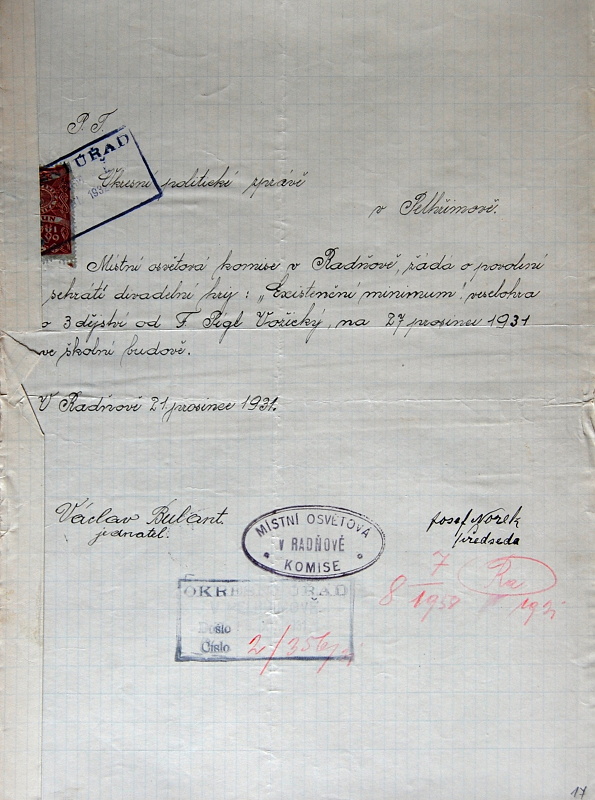 P. T.
ÚŘAD
Okresní politické zprávě
v Pelhřimově.
Místní osvětová komise v Radňově, žádá o povolení
sehráti divadelní hry: „Existenční minimum", veselohra
o 3 dějství od F. Pigl Vořický, na 27 prosinec 1931
ve školní budově.
V Radňově 21 prosinec 1931.
Václav Bulant.
jednatel.
Josef Norek
předseda
MÍSTNÍ OSVĚTOVÁ
V RADŇOVĚ
KOMISE
7
Ra
8
1938
OKRESNÍ ÚŘAD
Došlo
Číslo
17